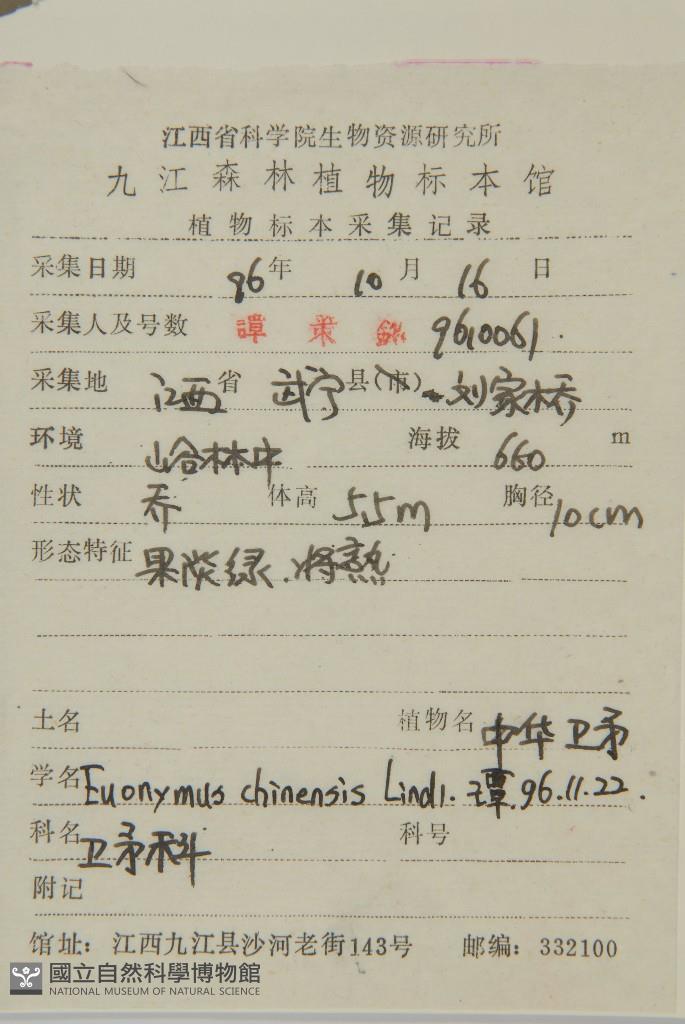 江西省科学院生物资源研究所
九江森林植物标本馆
植物标本采集记录
采集日期 96年 10月 16日
采集人及号数 譚策銘 9610061.
采集地 江西省 武宁县(市) 刘家桥
环境 山谷林中 海拔 660 m
性状 乔 体高 5.5m 胸径 10cm
形态特征 果淡绿.将熟
土名 植物名 中华卫矛
学名 Euonymus chinensis Lindl. 譚.96.11.22.
科名 卫矛科 科号
附记
馆址：江西九江县沙河老街143号 邮编：332100
國立自然科學博物館
NATIONAL MUSEUM OF NATURAL SCIENCE